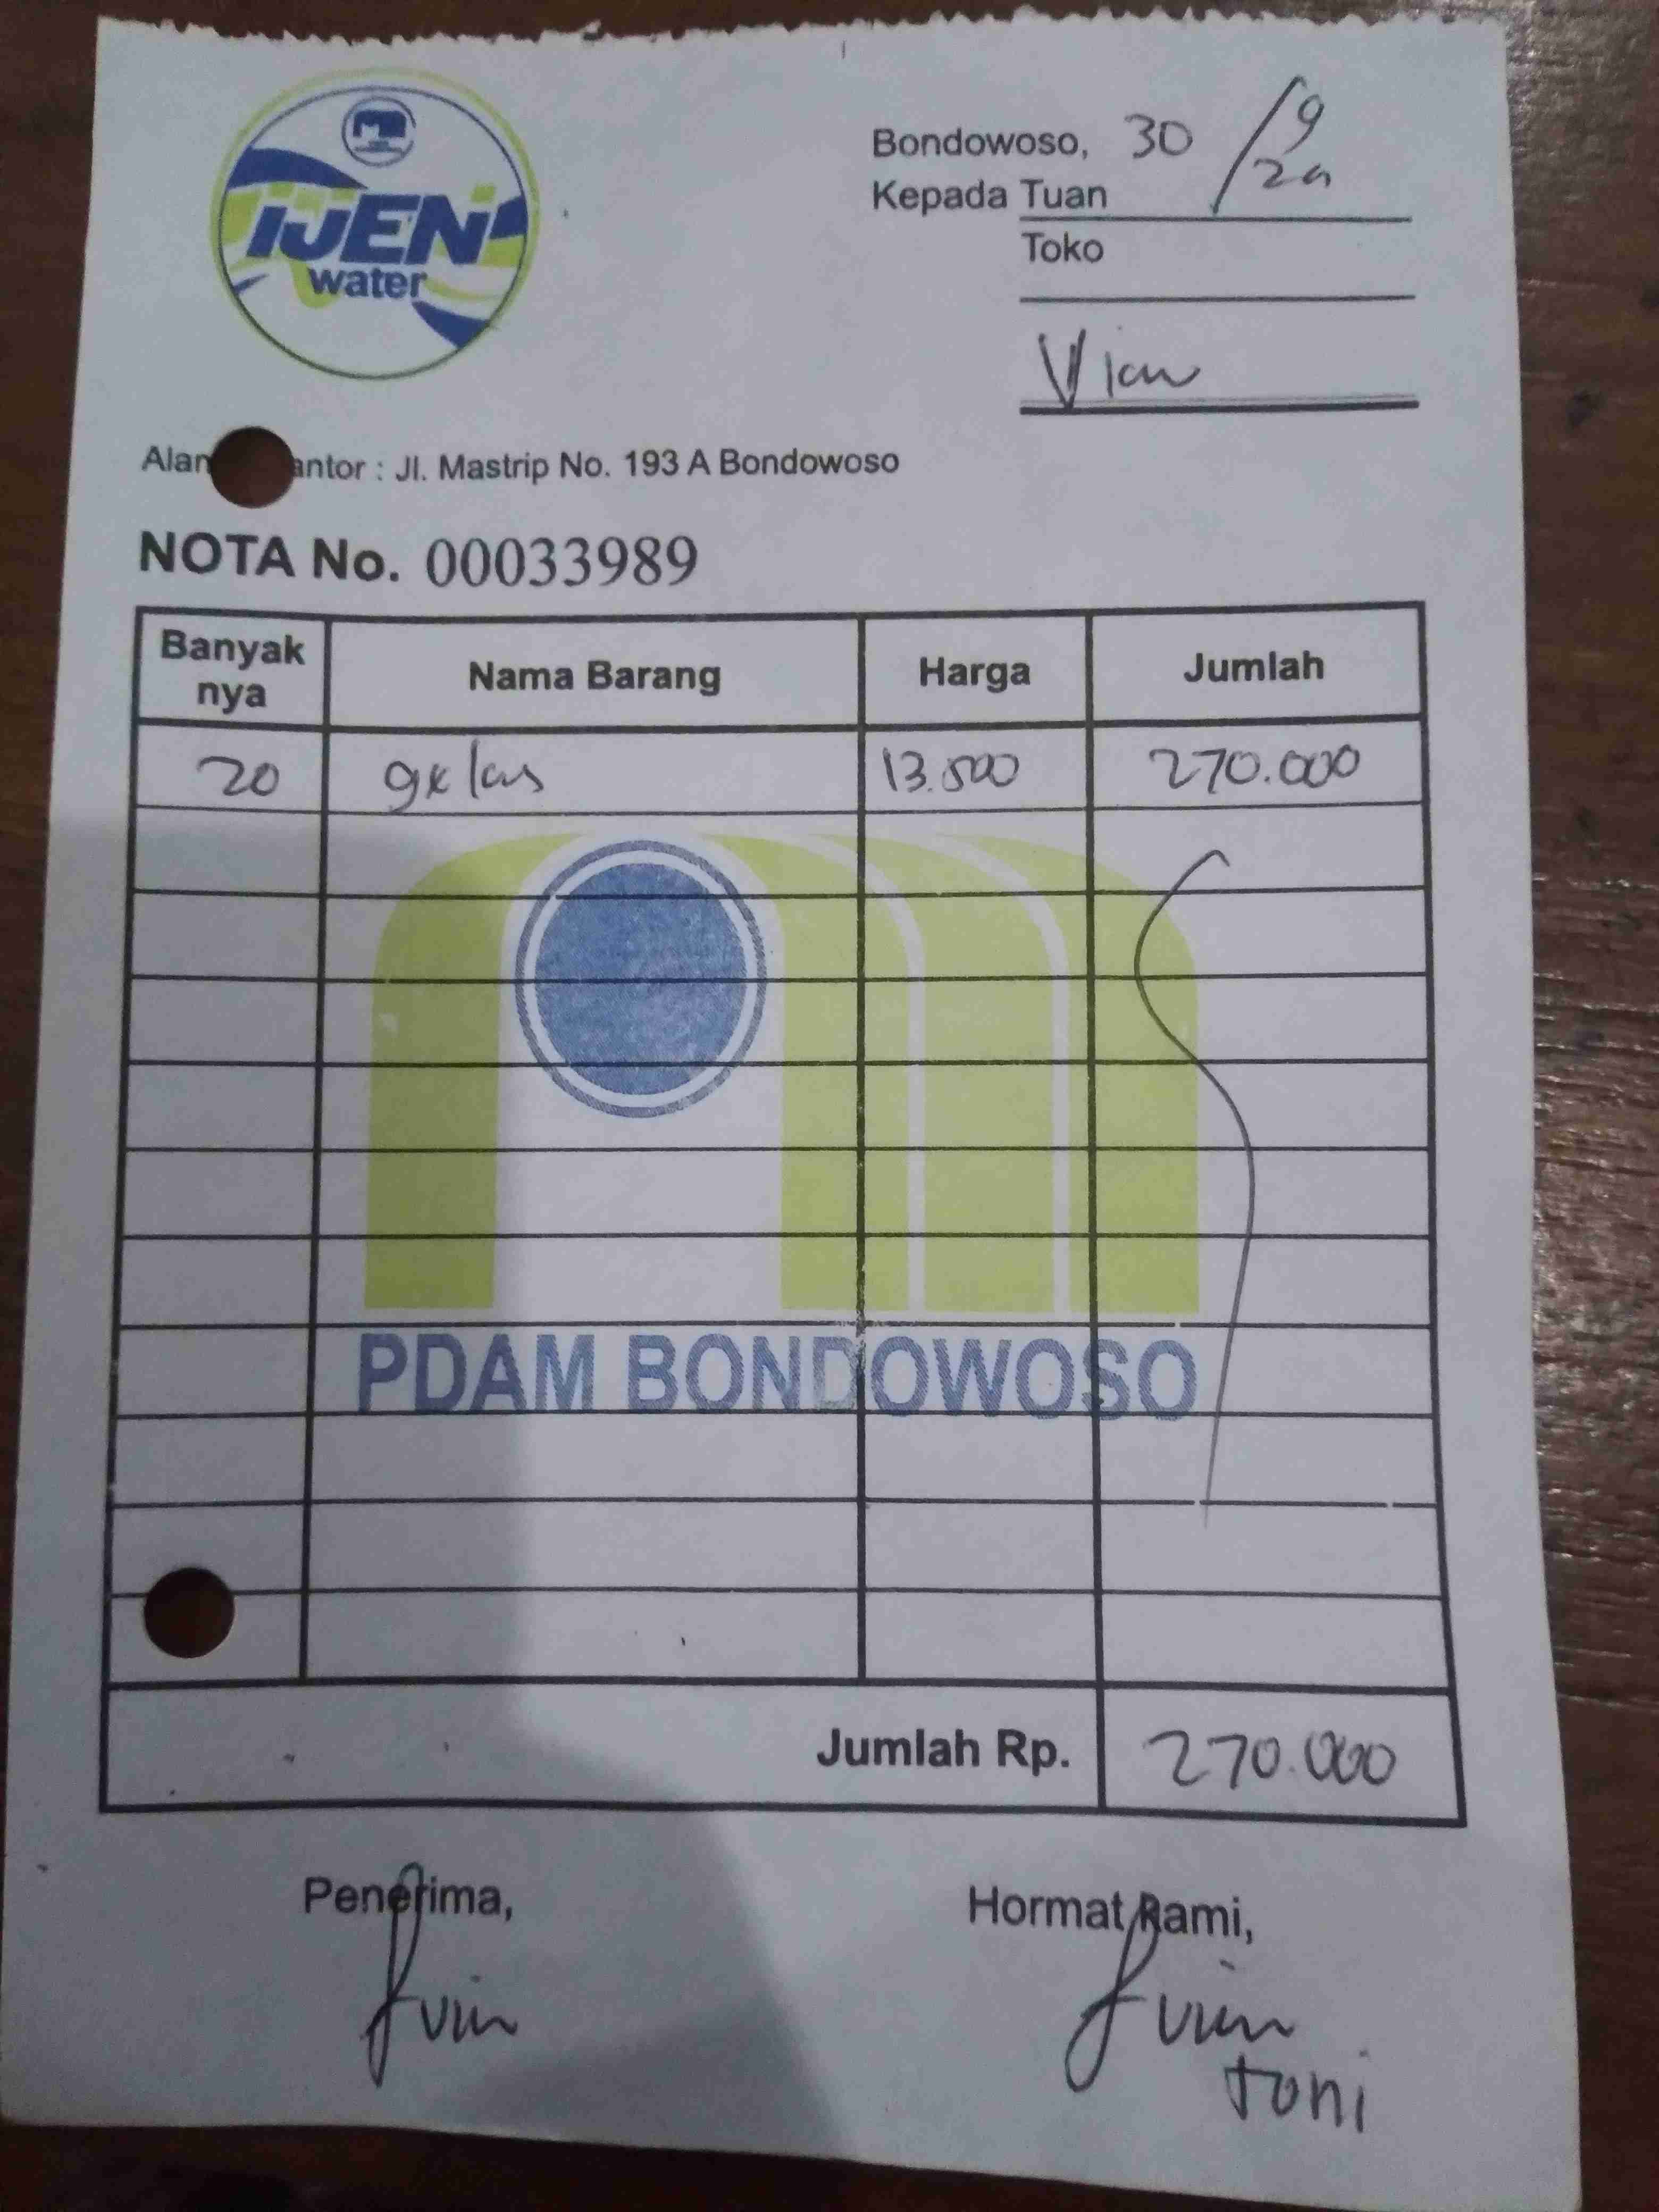 IJEN
water
Bondowoso, 30/9
Kepada Tuan
Toko
Vian
Alan antor : Jl. Mastrip No. 193 A Bondowoso
NOTA No. 00033989
Banyak nya Nama Barang Harga Jumlah
20 gelas 13.500 270.000
PDAM BONDOWOSO
Jumlah Rp. 270.000
Penerima, Hormat Kami,
toni